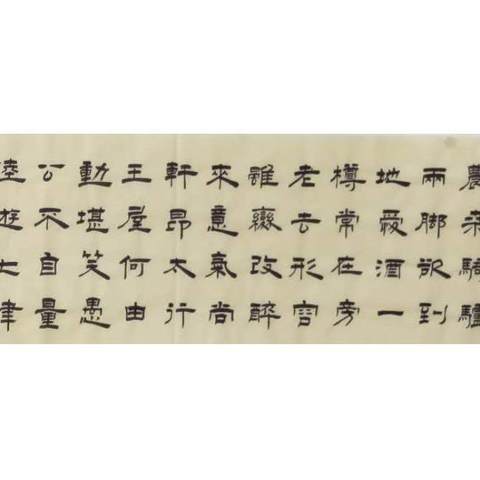 農桒騎驢
兩脚欲到
地愛酒一
樽常在旁
老去形容
雖變改醉
來意氣尚
軒昂太行
王屋何由
動堪笑愚
公不自量
陸游七律